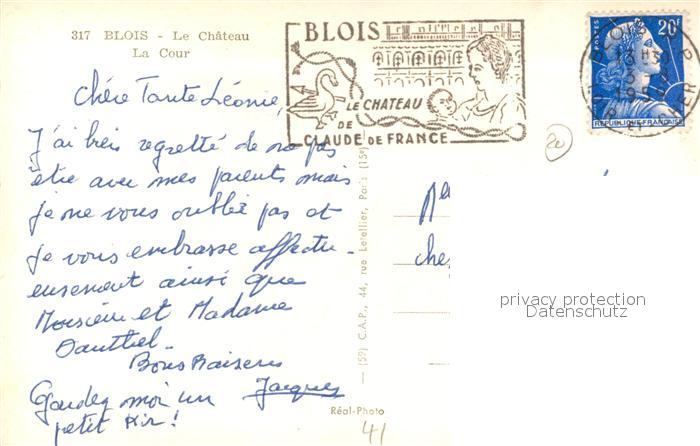 317 BLOIS - Le Château
La Cour
BLOIS
LE CHATEAU
DE
CLAUDE DE FRANCE
BLOIS
POSTES
20F
REPUBLIQUE FRANÇAISE
20
Chère Tante Léonie,
J'ai bien regretté de ne pas
être avec mes parents mais
je ne vous oublie pas et
je vous embrasse affectu-
eusement ainsi que
Monsieur et Madame
Bons Baisers
Jacques
Gardez moi un
petit Kir!
(59) C.A.P., 44, rue Letellier, Paris (15e)
Réal-Photo
41
che
privacy protection
Datenschutz